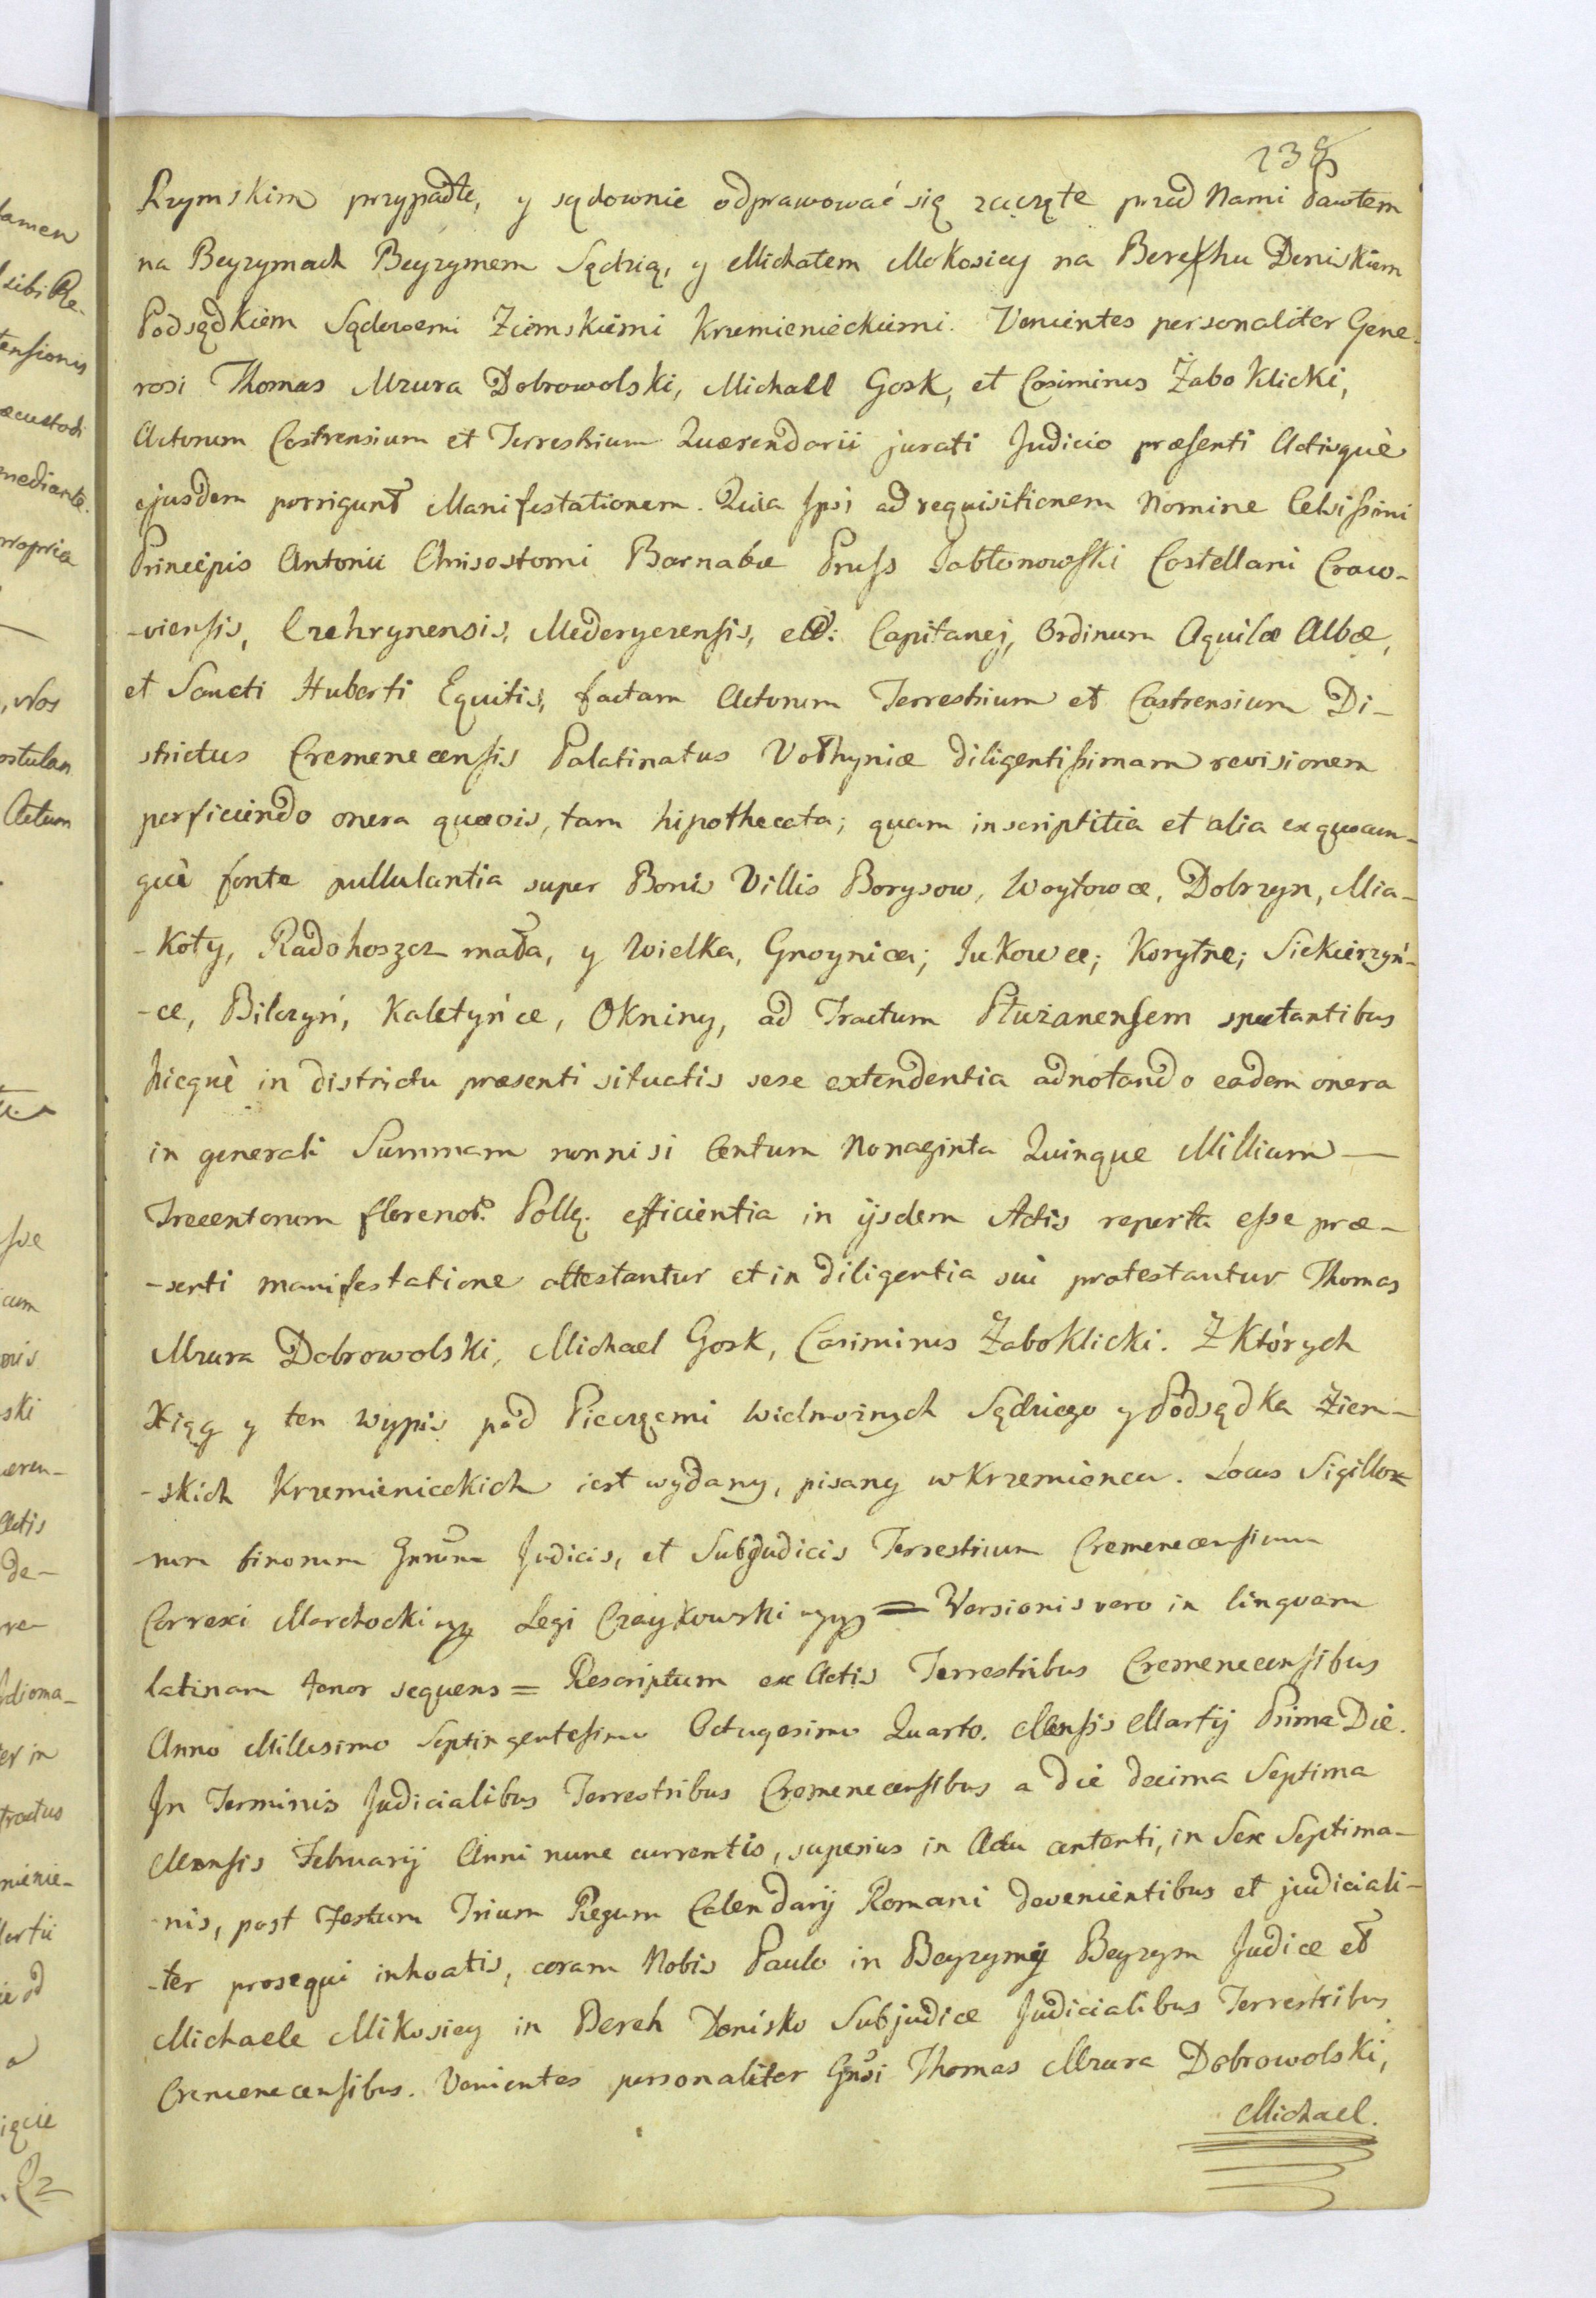 238
Rzymskim przypadłe, y sądownie odprawować się zaczęte przed Nami Pawłem
na Beyzymach Beyzymem Sędzią, y Michałem Mokosiey na Berehu Deniskiem
Podsędkiem Sądowemi Ziemskiemi Krzemienieckiemi. Venientes personaliter Gene-
rosi Thomas Mzura Dobrowolski, Michael Gosk, et Casimirus Żabo Klicki,
Actorum Castrensium et Terrestrium Quærendarii jurati Judicio præsenti Actisquè
ejusdem porrigunt Manifestationem. Quia Ipsi ad requisitionem Nomine Celsissimi
Principis Antonii Chrisostomi Barnabæ Pruss Jabłonowski Castellani Craco-
-viensis, Czehrynensis, Mederycensis, etc: Capitanej, Ordinum Aquilæ Albæ,
et Sancti Huberti Equitis, factam Actorum Terrestrium et Castrensium Di-
strictus Cremenecensis Palatinatus Volhyniæ diligentissimam revisionem
perficiendo onera quævis, tam hipothecata; quam inscriptitia et alia ex quocun-
què fonte pullulantia super Bonis Villis Borysow, Woytowce, Dobrzyn, Mia-
-Koty, Radohoszcz mała, y Wielka, Gnoynica; Jukowce; Korytne; Siekierzyń-
-ce, Bilczyń, Kaletyńce, Okniny, ad Tractum Płużanensem spectantibus
hicquè in districtu præsenti situatis sese extendentia adnotando eadem onera
in generali Summam nonnisi Centum Nonaginta Quinque Millium —
Trecentorum florenor: Pollq. efficientia in ijsdem Actis reperta esse præ-
-senti manifestatione attestantur et in diligentia sui protestantur Thomas
Mzura Dobrowolski, Michael Gosk, Casimirus Żaboklicki. Z Których
Xiąg y ten wypis pod Pieczęcmi Wielmożnych Sędziego y Podsędka Ziem-
-skich Krzemienieckich iest wydany, pisany w Krzemieńcu. Locus Sigillo-
rum binorum Gnrum Judicis, et Subjudicis Terrestrium Cremenecensium
Correxi Marchocki Legi Czaykowski = Versionis vero in linguam
latinam tenor sequens = Rescriptum ex Actis Terrestribus Cremenecensibus
Anno Millesimo Septingentesimo Octugesimo Quarto. Mensis Martij Prima Die.
In Terminis Judicialibus Terrestribus Cremenecensibus a die decima Septima
Mensis Februarij Anni nunc currentis, superius in Actu contenti, in Sex Septima-
-nis, post Festum Trium Regum Calendarij Romani devenientibus et judiciali-
-ter prosequi inhoatis, coram Nobis Paulo in Beyzymy Beyzym Judice et
Michaele Mikosiey in Bereh Denisko Subjudice Judicialibus Terrestribus
Cremenecensibus. Venientes personaliter Gnsi Thomas Mzura Dobrowolski,
Michael.